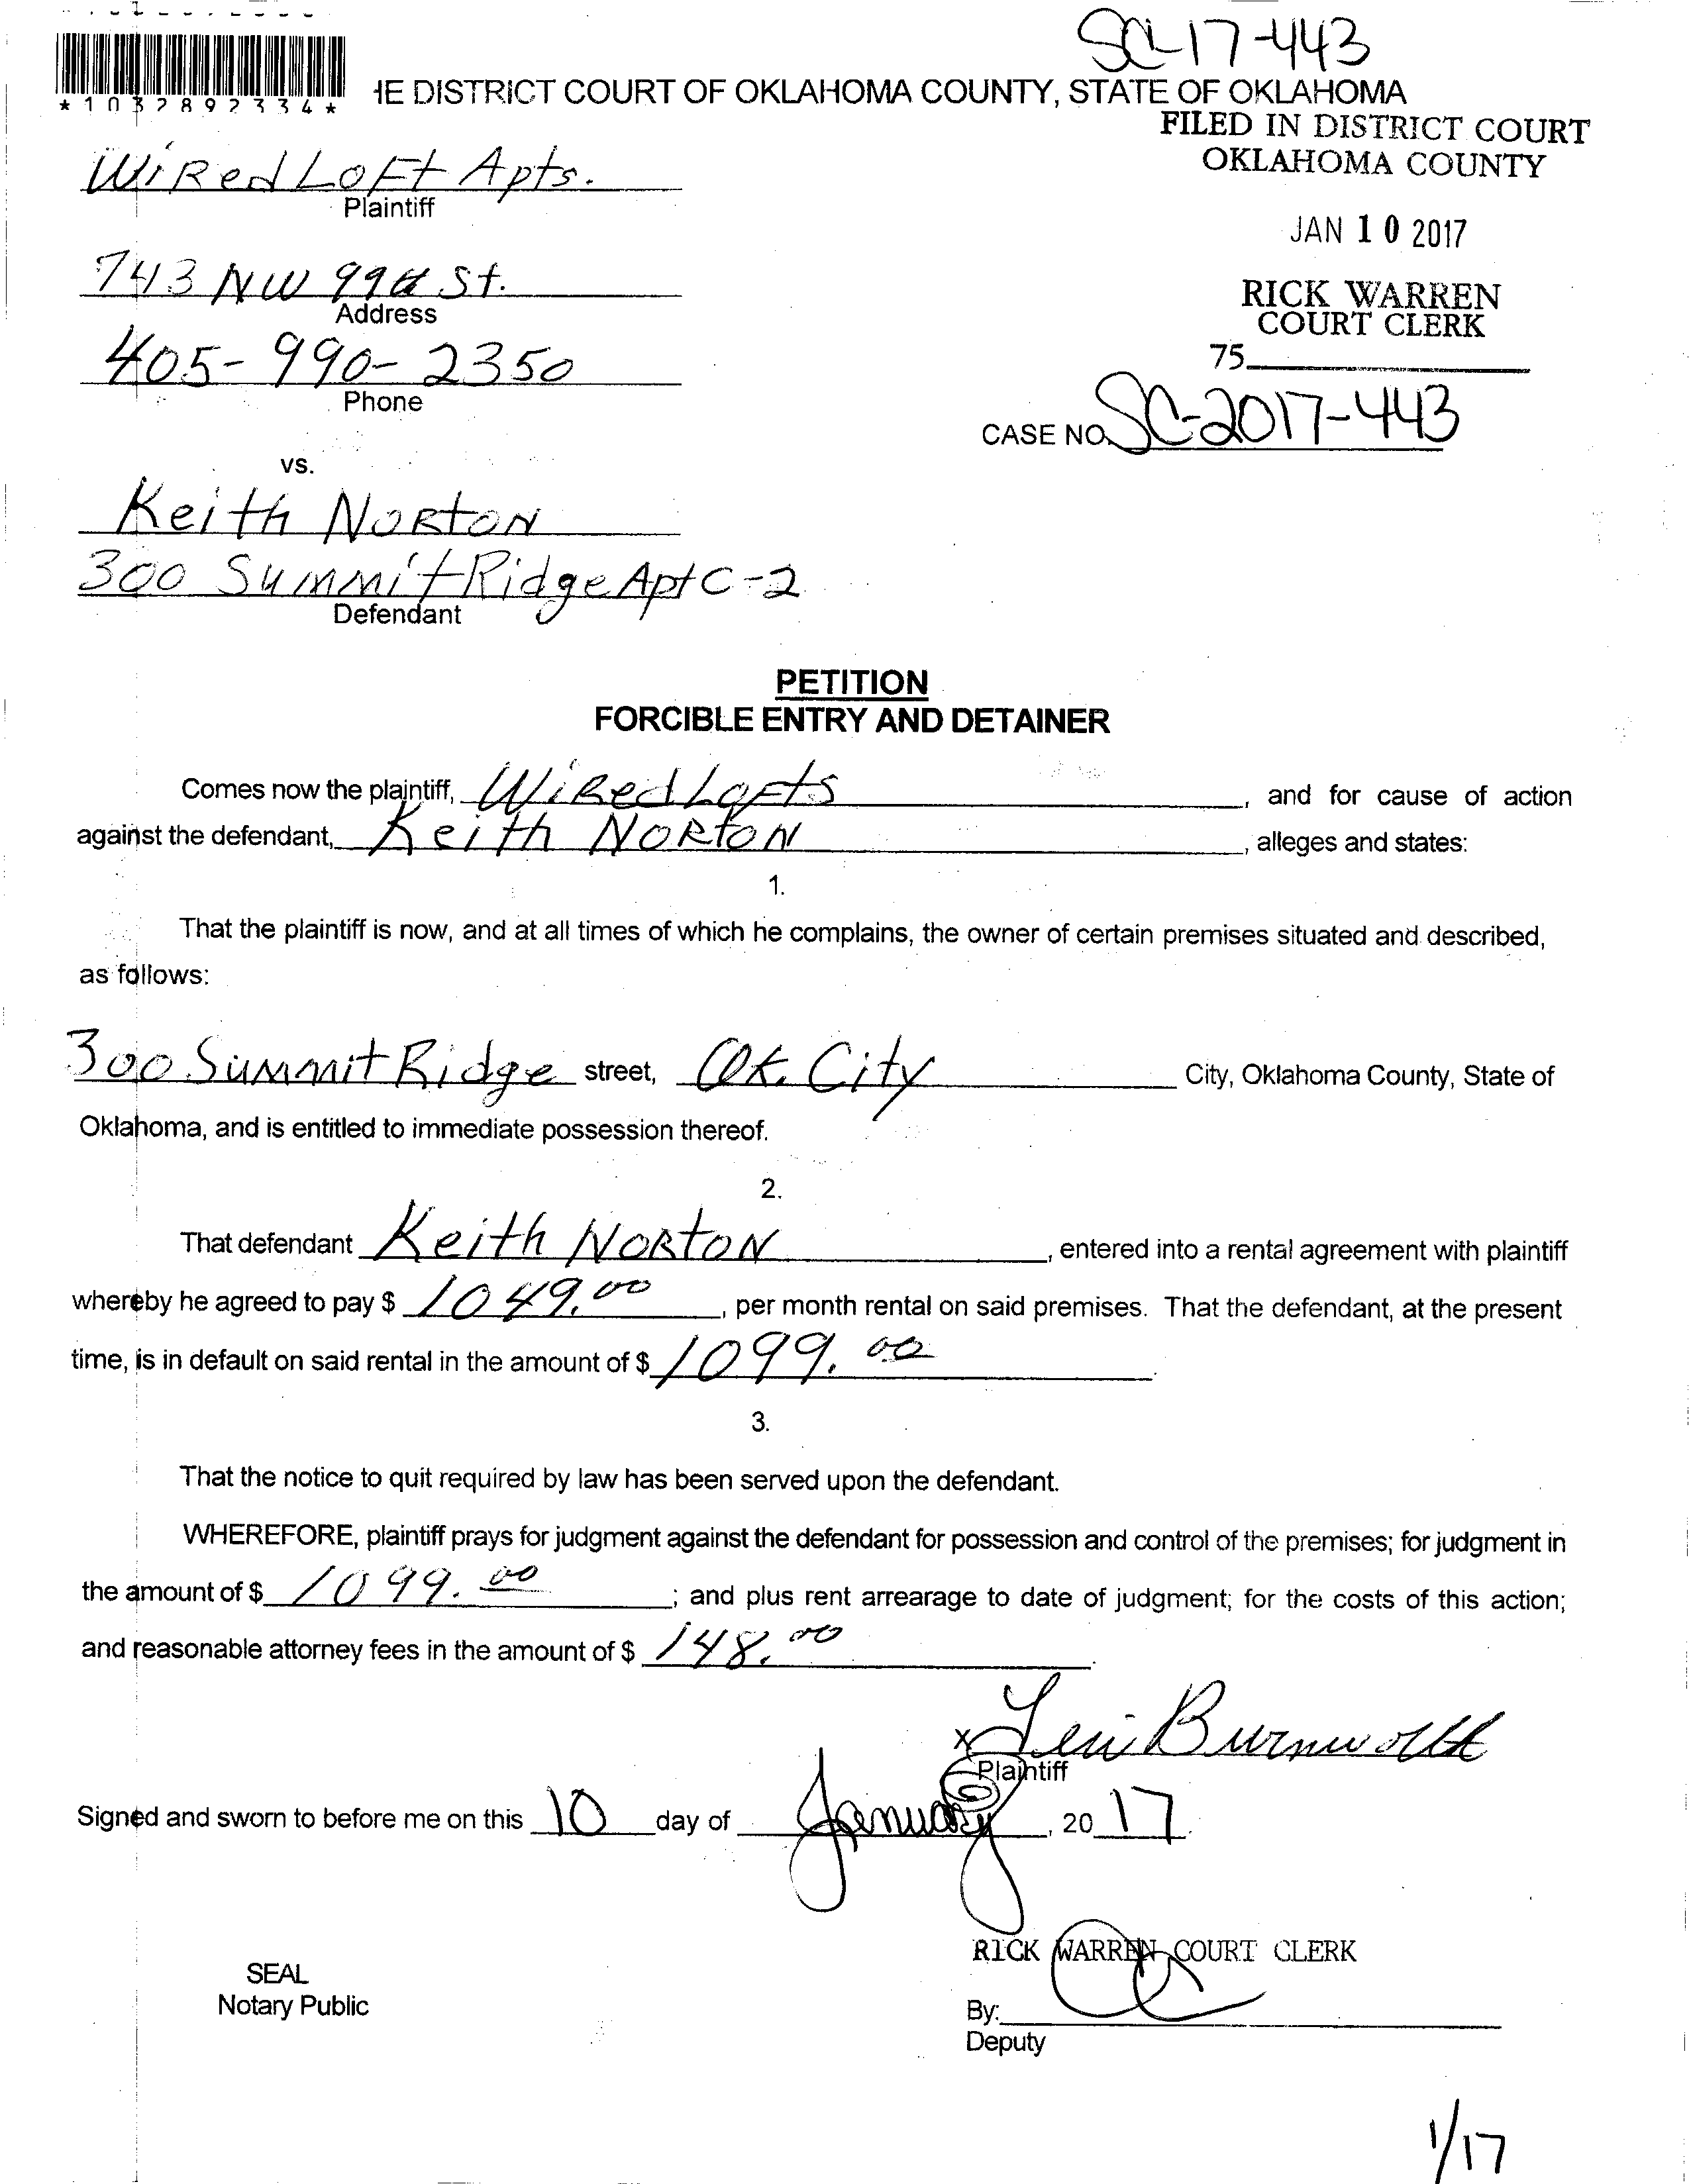 SC-17-443
*1032892334*
HE DISTRICT COURT OF OKLAHOMA COUNTY, STATE OF OKLAHOMA
FILED IN DISTRICT COURT
OKLAHOMA COUNTY
Wired Loft Apts.
Plaintiff
JAN 10 2017
743 NW 99th St.
Address
RICK WARREN
COURT CLERK
405-990-2350
Phone
75
CASE NO. SC-2017-443
vs.
Keith Norton
300 Summit Ridge Apt C-2
Defendant
PETITION
FORCIBLE ENTRY AND DETAINER
Comes now the plaintiff, Wired Lofts, and for cause of action
against the defendant, Keith Norton, alleges and states:
1.
That the plaintiff is now, and at all times of which he complains, the owner of certain premises situated and described,
as follows:
300 Summit Ridge street, Ok. City City, Oklahoma County, State of
Oklahoma, and is entitled to immediate possession thereof.
2.
That defendant Keith Norton, entered into a rental agreement with plaintiff
whereby he agreed to pay $ 1049.00, per month rental on said premises. That the defendant, at the present
time, is in default on said rental in the amount of $ 1099.00.
3.
That the notice to quit required by law has been served upon the defendant.
WHEREFORE, plaintiff prays for judgment against the defendant for possession and control of the premises; for judgment in
the amount of $ 1099.00; and plus rent arrearage to date of judgment; for the costs of this action;
and reasonable attorney fees in the amount of $ 148.00.
x Burnworth
Plaintiff
Signed and sworn to before me on this 10 day of January, 20 17.
RICK WARREN COURT CLERK
SEAL
Notary Public
By:
Deputy
1/17